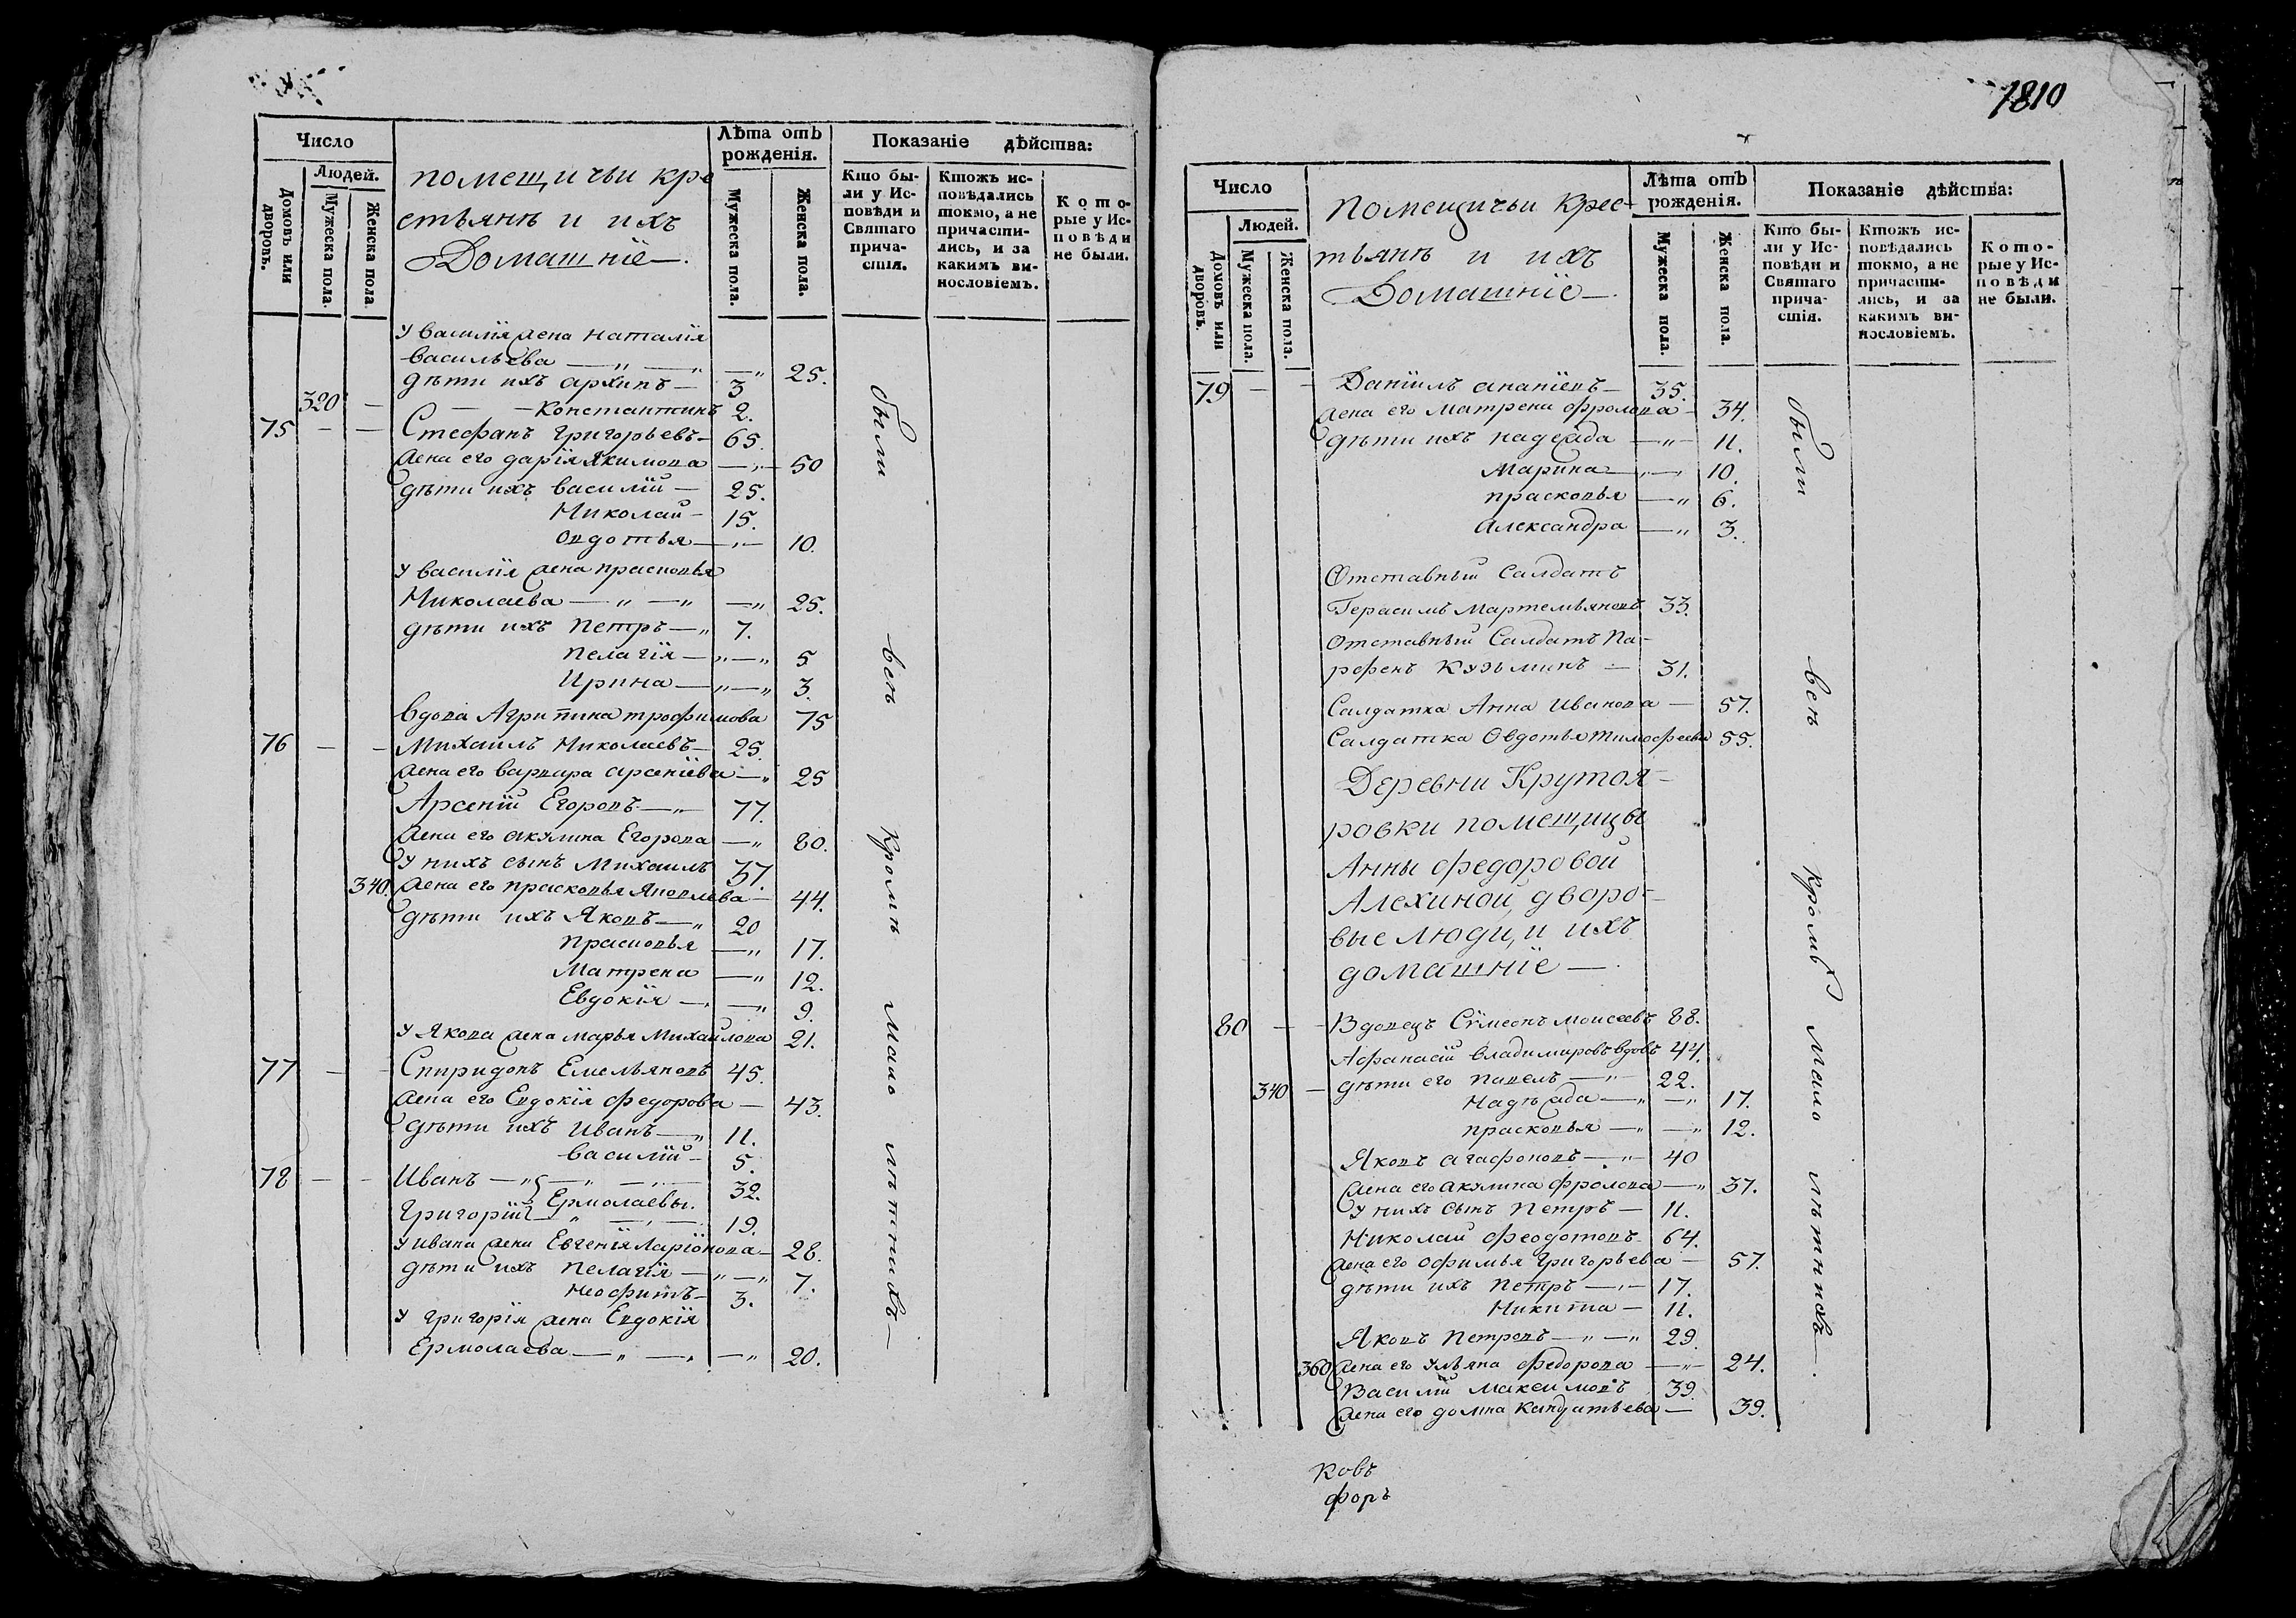 Число
Людей.
Домовъ или дворовъ.
Мужеска пола.
Женска пола.
помещичьи кре
стьянѣ и ихъ
Домашніе.
Лѣта отъ рожденія.
Мужеска пола.
Женска пола.
Показаніе дѣйства:
Кто бы-
ли у Ис-
повѣди и
Святаго
прича-
стія.
Ктожъ ис-
повѣдались
токмо, а не
причасти-
лись, и за
какимъ ви-
нословіемъ.
Кото-
рые у Ис-
повѣди
не были.
У василія жена наталія
васильева — 25.
дѣти ихъ архипъ — 3
320 — Константинъ 2.
75 — — Стефанъ григорьевъ — 65.
жена его дарія Якимова — 50
дѣти ихъ василій — 25.
Николай — 15.
Овдотья — 10.
У василія жена прасковья
Николаева — 25.
дѣти ихъ петръ — 7.
пелагія — 5
Ирина — 3.
вдова Агрипина трофимова 75
76 — — Михаилъ Николаевъ — 25.
жена его варвара арсеніева — 25
Арсеній Егоровъ — 77.
жена его акулина Егорова — 80.
У нихъ сынъ Михаилъ 37.
340. жена его прасковья Яковлева — 44.
дѣти ихъ Яковъ — 20
прасковья — 17.
Матрена — 12.
Евдокія — 9.
У Якова жена марья Михайлова 21.
77 — — Спиридонъ Емельяновъ 45.
жена его Евдокія федорова — 43.
дѣти ихъ Иванъ — 11.
василій — 5.
78 — — Иванъ — 32.
Ермолаевы.
Григорій — 19.
У ивана жена Евгенія Ларіонова — 28.
дѣти ихъ пелагія — 7.
Неофитъ — 3.
У григорія жена Евдокія
Ермолаева — 20.
были всѣ кромѣ мало лѣтнихъ —
1810
Число
Людей.
Домовъ или дворовъ.
Мужеска пола.
Женска пола.
помещичьи крес-
тьянѣ и ихъ
Домашніе —
Лѣта отъ рожденія.
Мужеска пола.
Женска пола.
Показаніе дѣйства:
Кто бы-
ли у Ис-
повѣди и
Святаго
прича-
стія.
Ктожъ ис-
повѣдались
токмо, а не
причасти-
лись, и за
какимъ ви-
нословіемъ.
Кото-
рые у Ис-
повѣди
не были.
79 — — Даніилъ ананіевъ — 35.
жена его Матрена фролова — 34.
дѣти ихъ надежда — 11.
Марина — 10.
прасковья — 6.
александра — 3.
Отставный салдатъ
Герасимъ Мартемьяновъ 33.
Отставный Салдатъ Па-
рфенъ Кузьминъ — 31.
Салдатка Анна Иванова — 57.
Салдатка Овдотья тимофеева 55.
Деревни Крутоя-
ровки помещицы
Анны федоровой
Алехиной, дворо-
вые люди, и ихъ
домашніе —
80 — — Вдовецъ Сѵмеонъ моисеевъ 88.
Афанасій владимировъ вдовъ 44.
340 — дѣти его павелъ — 22.
Надѣжда — 17.
прасковья — 12.
Яковъ агафоновъ — 40
жена его акулина фролова — 37.
У нихъ сынъ Петръ — 11.
Николай феодотовъ — 64.
жена его офимья григорьева — 57.
дѣти ихъ петръ — 17.
Никита — 11.
Яковъ петровъ — 29.
360 жена его ульяна федорова — 24.
Василій максимовъ 39.
жена его домна Кандатьева — 39.
были всѣ кромѣ мало лѣтнихъ —
ковъ
форъ